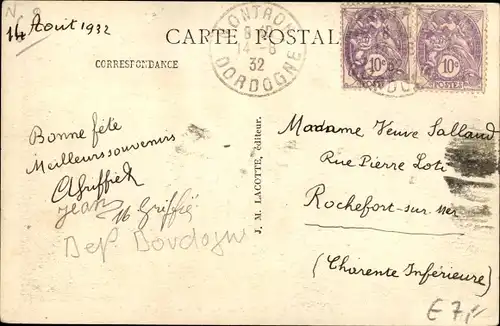 14 Août 1932
CARTE POSTALE
CORRESPONDANCE
NONTRON
14-8
32
DORDOGNE
10c 10c
POSTES
Bonne fête
Meilleurs souvenirs
Jean
Dep Dordogne
J. M. LACOTTE, éditeur.
Madame Veuve Salland
Rue Pierre Loti
Rochefort-sur-mer
(Charente Inférieure)
E 7,-